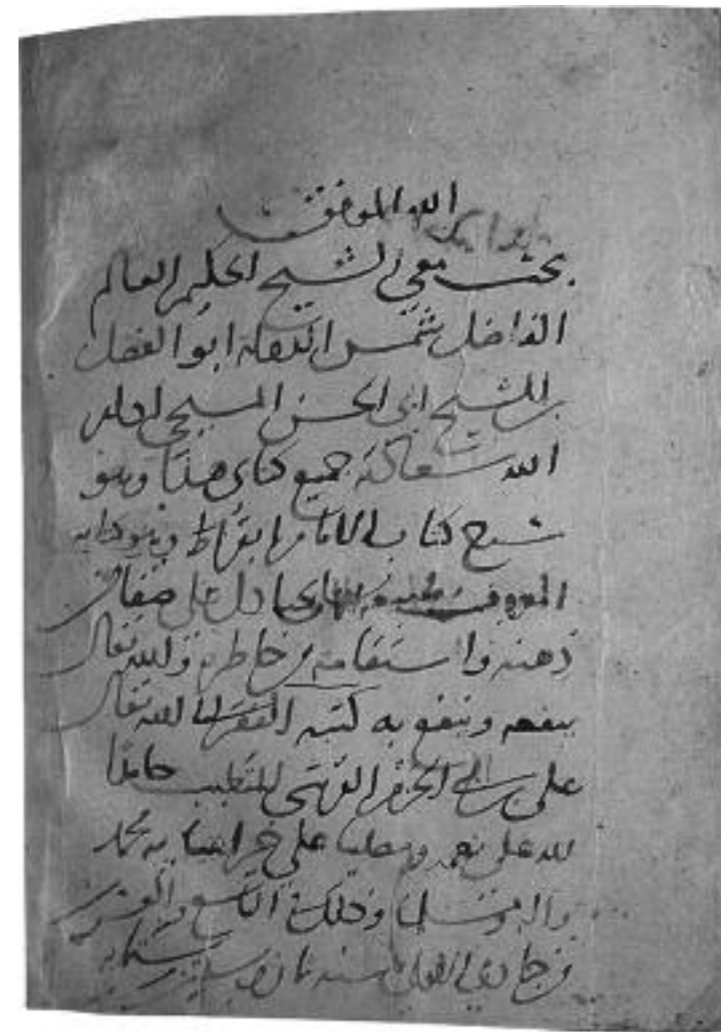 الله الموفق
بحث معي الشيخ الحكيم العالم
الفاضل شمس الدولة ابو الفضل
بن الشيخ ابي الحسن المسيحي ادام
الله سعادته جميع كتابي هذا وهو
شرح كتاب الامام ابقراط وهو كتابه
المعروف بطبيعة الانسان بحثا دل على صفاء
ذهنه واستقامة خاطره والله تعالى
ينفعه وينفع به كتبه الفقير الى الله تعالى
علي بن ابي الحزم القرشي المتطبب حامدا
لله على نعمه ومصليا على خير انبيايه محمد
واله ومسلما وذلك في التاسع والعشرين
من جمادى الاولى سنة ثمان وستين وستمايه